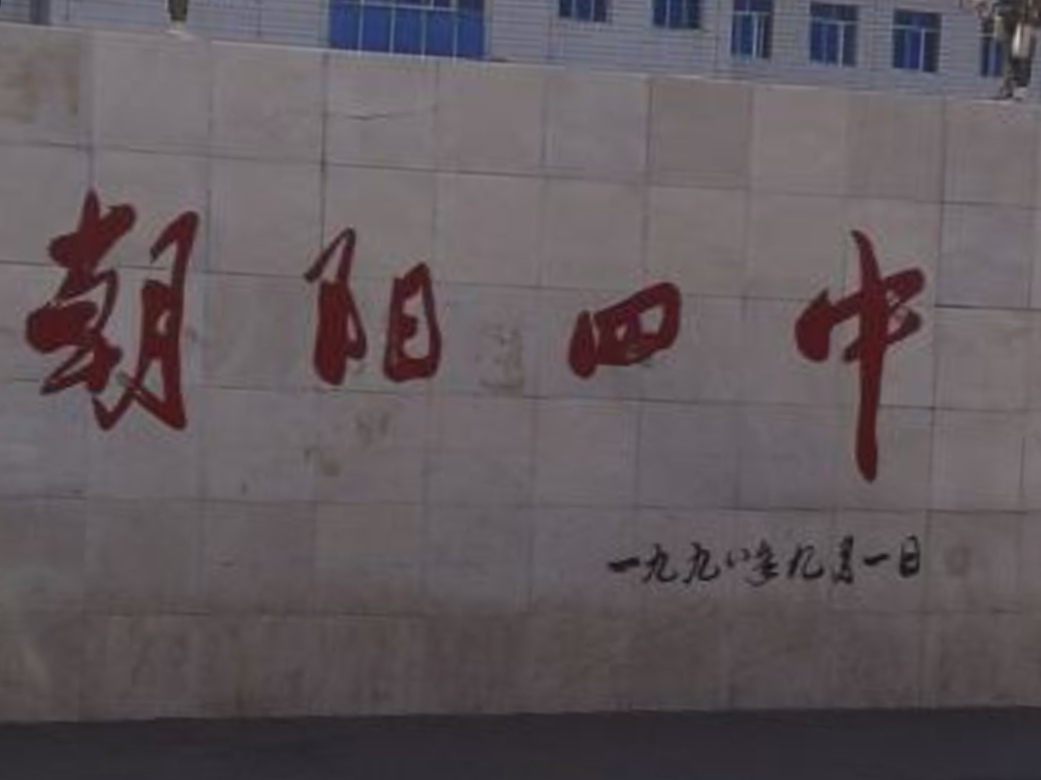 朝阳四中
一九九八年九月一日